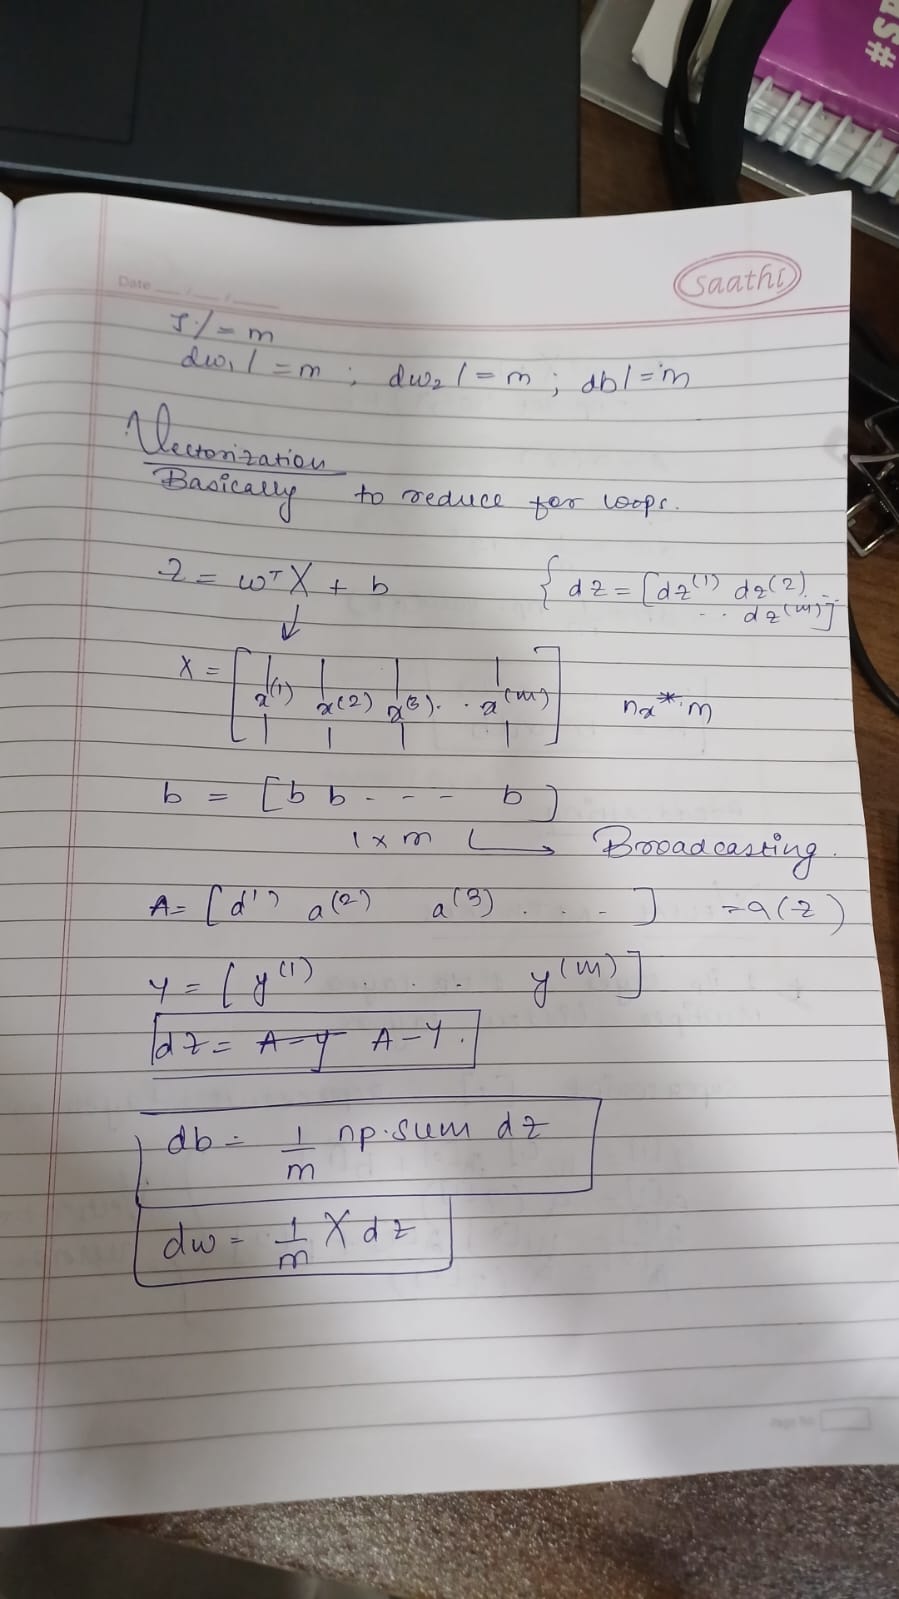 #SA
Date
Saathi
J /= m
dw₁ /= m ; dw₂ /= m ; db /= m
Vectorization
Basically to reduce for loops.
z = wᵀX + b { dz = [dz⁽¹⁾ dz(2) ..
.. dz⁽ᵐ⁾]
X = [ x⁽¹⁾ x(2) x⁽³⁾ . . x⁽ᵐ⁾ ] nx * m
b = [ b b - - - b ]
1 x m → Broadcasting.
A = [ a⁽¹⁾ a(2) a(3) . . - ] = a(z)
Y = [ y⁽¹⁾ . . . y⁽ᵐ⁾ ]
dz = A-Y A-Y.
db = 1/m np.sum dz
dw = 1/m X dz
Page No